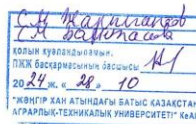 С М
С М
қолын куәландырамын.
ПЖЖ басқармасының басшысы
20 24 ж. « 28 » 10
"ЖӘҢГІР ХАН АТЫНДАҒЫ БАТЫС ҚАЗАҚСТАН
АГРАРЛЫҚ-ТЕХНИКАЛЫҚ УНИВЕРСИТЕТІ" КеАҚ